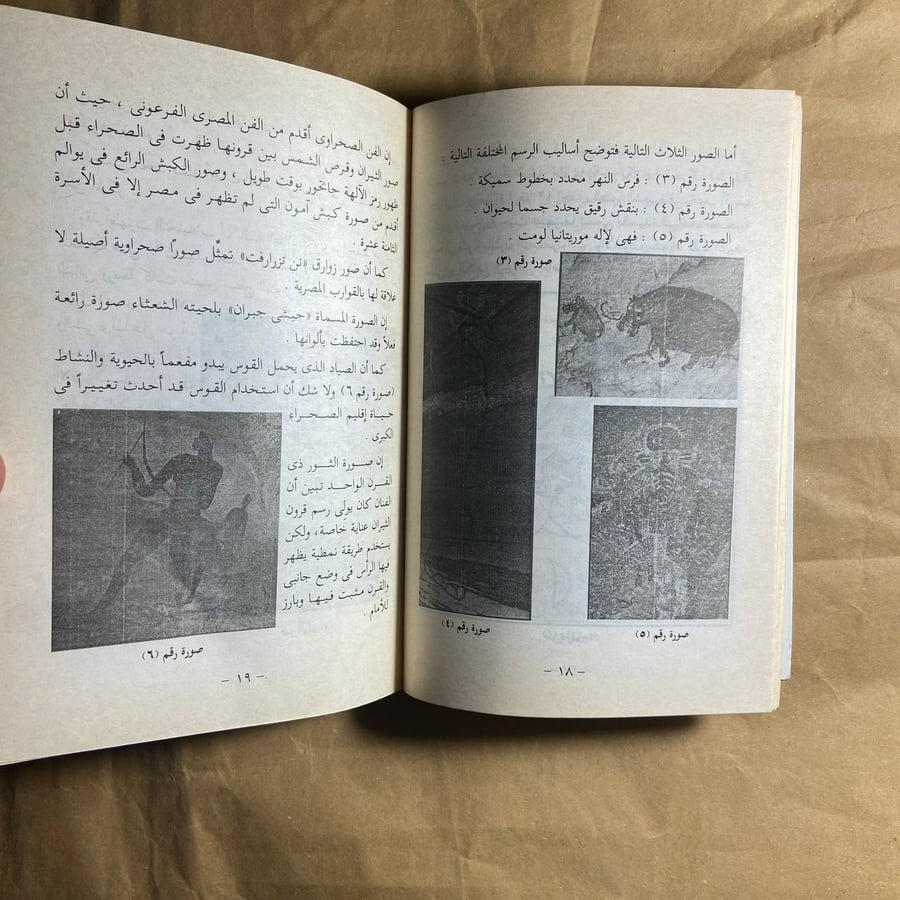 أما الصور الثلاث التالية فتوضح أساليب الرسم المختلفة التالية :
الصورة رقم (٣) : فرس النهر محدد بخطوط سميكة .
الصورة رقم (٤) : بنقش رقيق يحدد جسما لحيوان .
الصورة رقم (٥) : فهى لإله موريتانيا لومت .
صورة رقم (٣)
صورة رقم (٤)
صورة رقم (٥)
– ١٨ –
إن الفن الصحراوى أقدم من الفن المصرى الفرعونى ، حيث أن
صور الثيران وقرص الشمس بين قرونها ظهرت فى الصحراء قبل
ظهور رمز الآلهة حاتحور بوقت طويل ، وصور الكبش الرائع فى يوالم
أقدم من صورة كبش آمون التى لم تظهر فى مصر إلا فى الأسرة
الثامنة عشرة .
كما أن صور زوارق «تن تزرارفت» تمثِّل صورًا صحراوية أصيلة لا
علاقة لها بالقوارب المصرية .
إن الصورة المسماة «حبشى جبران» بلحيته الشعثاء صورة رائعة
فعلاً وقد احتفظت بألوانها .
كما أن الصياد الذى يحمل القوس يبدو مفعماً بالحيوية والنشاط
(صورة رقم ٦) ولا شك أن استخدام القوس قد أحدث تغييراً فى
حياة إقليم الصحراء
الكبرى .
إن صورة الثور ذى
القرن الواحد تبين أن
الفنان كان يولى رسم قرون
الثيران عناية خاصة، ولكن
يستخدم طريقة نمطية يظهر
فيها الرأس فى وضع جانبى
والقرن مثبت فيها وبارز
للأمام .
صورة رقم (٦)
– ١٩ –